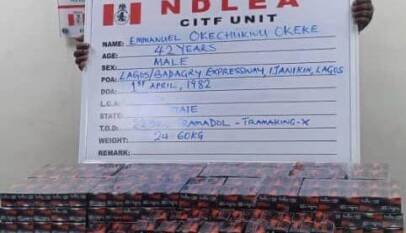 NDLEA
CITF UNIT
NAME: EMMANUEL OKECHUKWU OKEKE
AGE: 42 YEARS
SEX: MALE
POA: LAGOS/BADAGRY EXPRESSWAY, IJANIKIN, LAGOS
DOA: 1ST APRIL, 1982
L.G.A
STATE:
T.O.D: RAMADOL - TRAMAKING-X
WEIGHT: 24.60KG
REMARK: